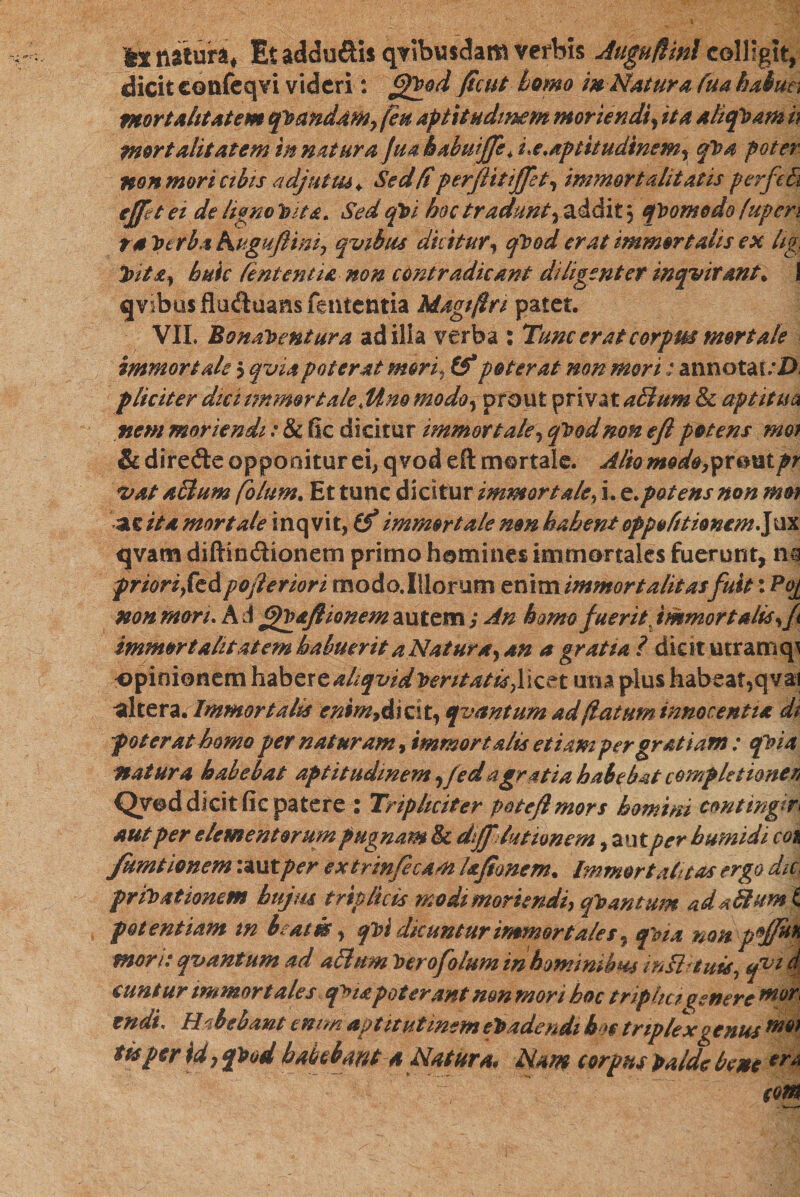 ex natura. Et adductis qvibusdam verbis Augustini colligit,
dicit conseqvi videri: Qvod sicut homo in Natura sua habuei
mortalitatem qvandam, seu aptitudinem moriendi, ita aliqvam ii
mortalitatem in natura sua habuisse. i.e. aptitudinem, qva poter
non mori cibis adjutus. Sed si perstitisset, immortalitatis perfecti
esset ei de ligno vitæ. Sed qvi hoc tradunt, addit; qvomodo superi
ra verba Augustini, qvibus dicitur, qvod erat immortalis ex lig.
vitæ, huic sententiæ non contradicant diligenter inqvirant.
qvibus fluctuans sententia Magistri patet.
VII. Bonaventura ad illa verba: Tunc erat corpus mortale
immortale; qvia poterat mori, & poterat non mori: annotat: D.
pliciter dici immortale. Uno modo, prout privat actum & aptitua
nem moriendi: & sic dicitur immortale, qvod non est potens mor
& directe opponitur ei, qvod est mortale. Alio modo, prout pr
vat actum solum. Et tunc dicitur immortale, i. e. potens non mor
ac ita mortale inqvit, & immortale non habent oppositionem. Jux
qvam distinctionem primo homines immortales fuerunt, no
priori, sed posteriori modo. Illorum enim immortalitas fuit: Pos
non mori. Ad Qvæstionem autem; An homo fuerit immortalis, si
immortalitatem habuerit a Natura, an a gratia? dicit utramqv
opinionem habere aliqvid veritatis, licet una plus habeat, qvai
altera. Immortalis enim, dicit, qvantum ad statum innocentiæ di
poterat homo per naturam, immortalis etiam per gratiam: qvia
natura habebat aptitudinem, sed a gratia habebat completionen
Qvod dicit sic patere: Tripliciter potest mors homini contingir
aut per elementorum pugnam & dissolutionem, aut per humidi con
sumtionem: aut per extrinsecam læsionem. Immortalitas ergo dic
privationem hujus triplicis modi moriendi, qvantum ad actum &
potentiam in beatis, qvi dicuntur immortales, qvia non possun
mori: qvantum ad actum vero solum in hominibus institutis, qvi d
cuntur immortales qvia poterant non mori hoc triplici genere mor
endi. Habebant enim aptitutinem evadendi hoc triplex genus mor
tis per id, qvod habebant a Natura. Nam corpus valde bene era
com